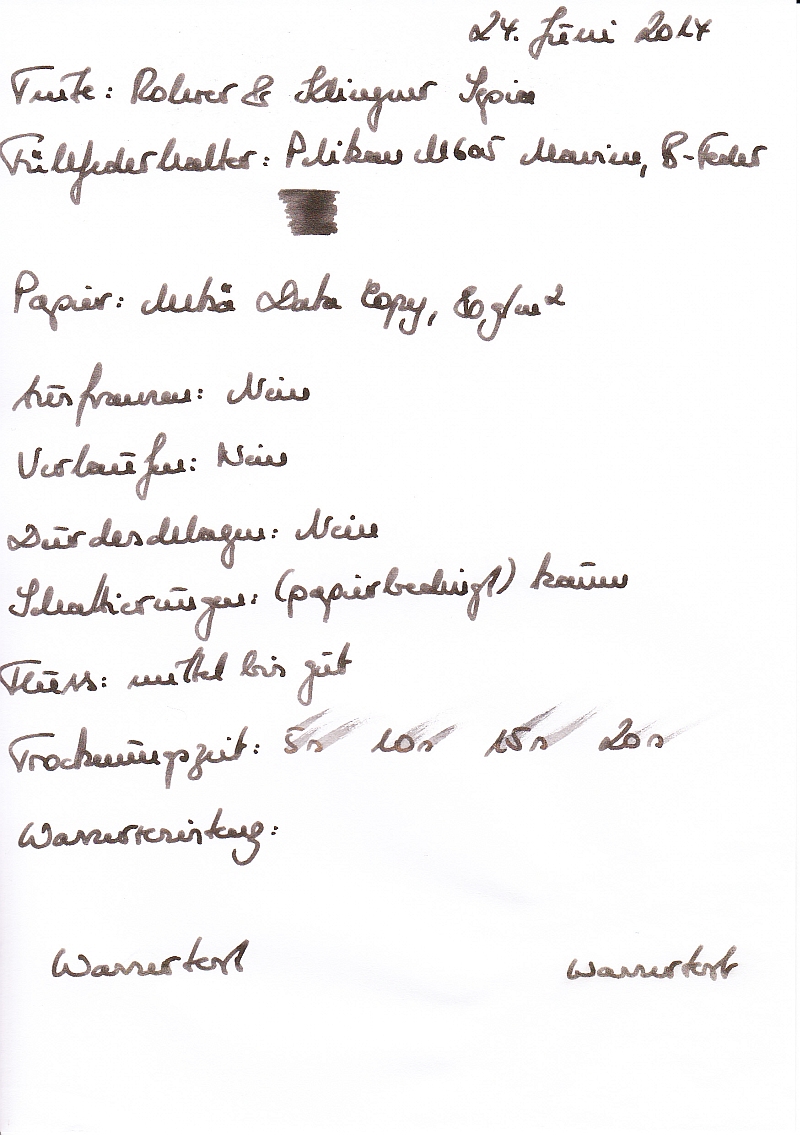 24. Juni 2014
Tinte: Rohrer & Klingner Sepia
Füllfederhalter: Pelikan M605 Marine, B-Feder
Papier: M-Real Data Copy, 80g/m²
Ausfransen: Nein
Verlaufen: Nein
Durchschlagen: Nein
Schattierungen: (papierbedingt) kaum
Fluss: mittel bis gut
Trocknungszeit: 5s 10s 15s 20s
Wasserresistenz:
Wassertest Wassertest